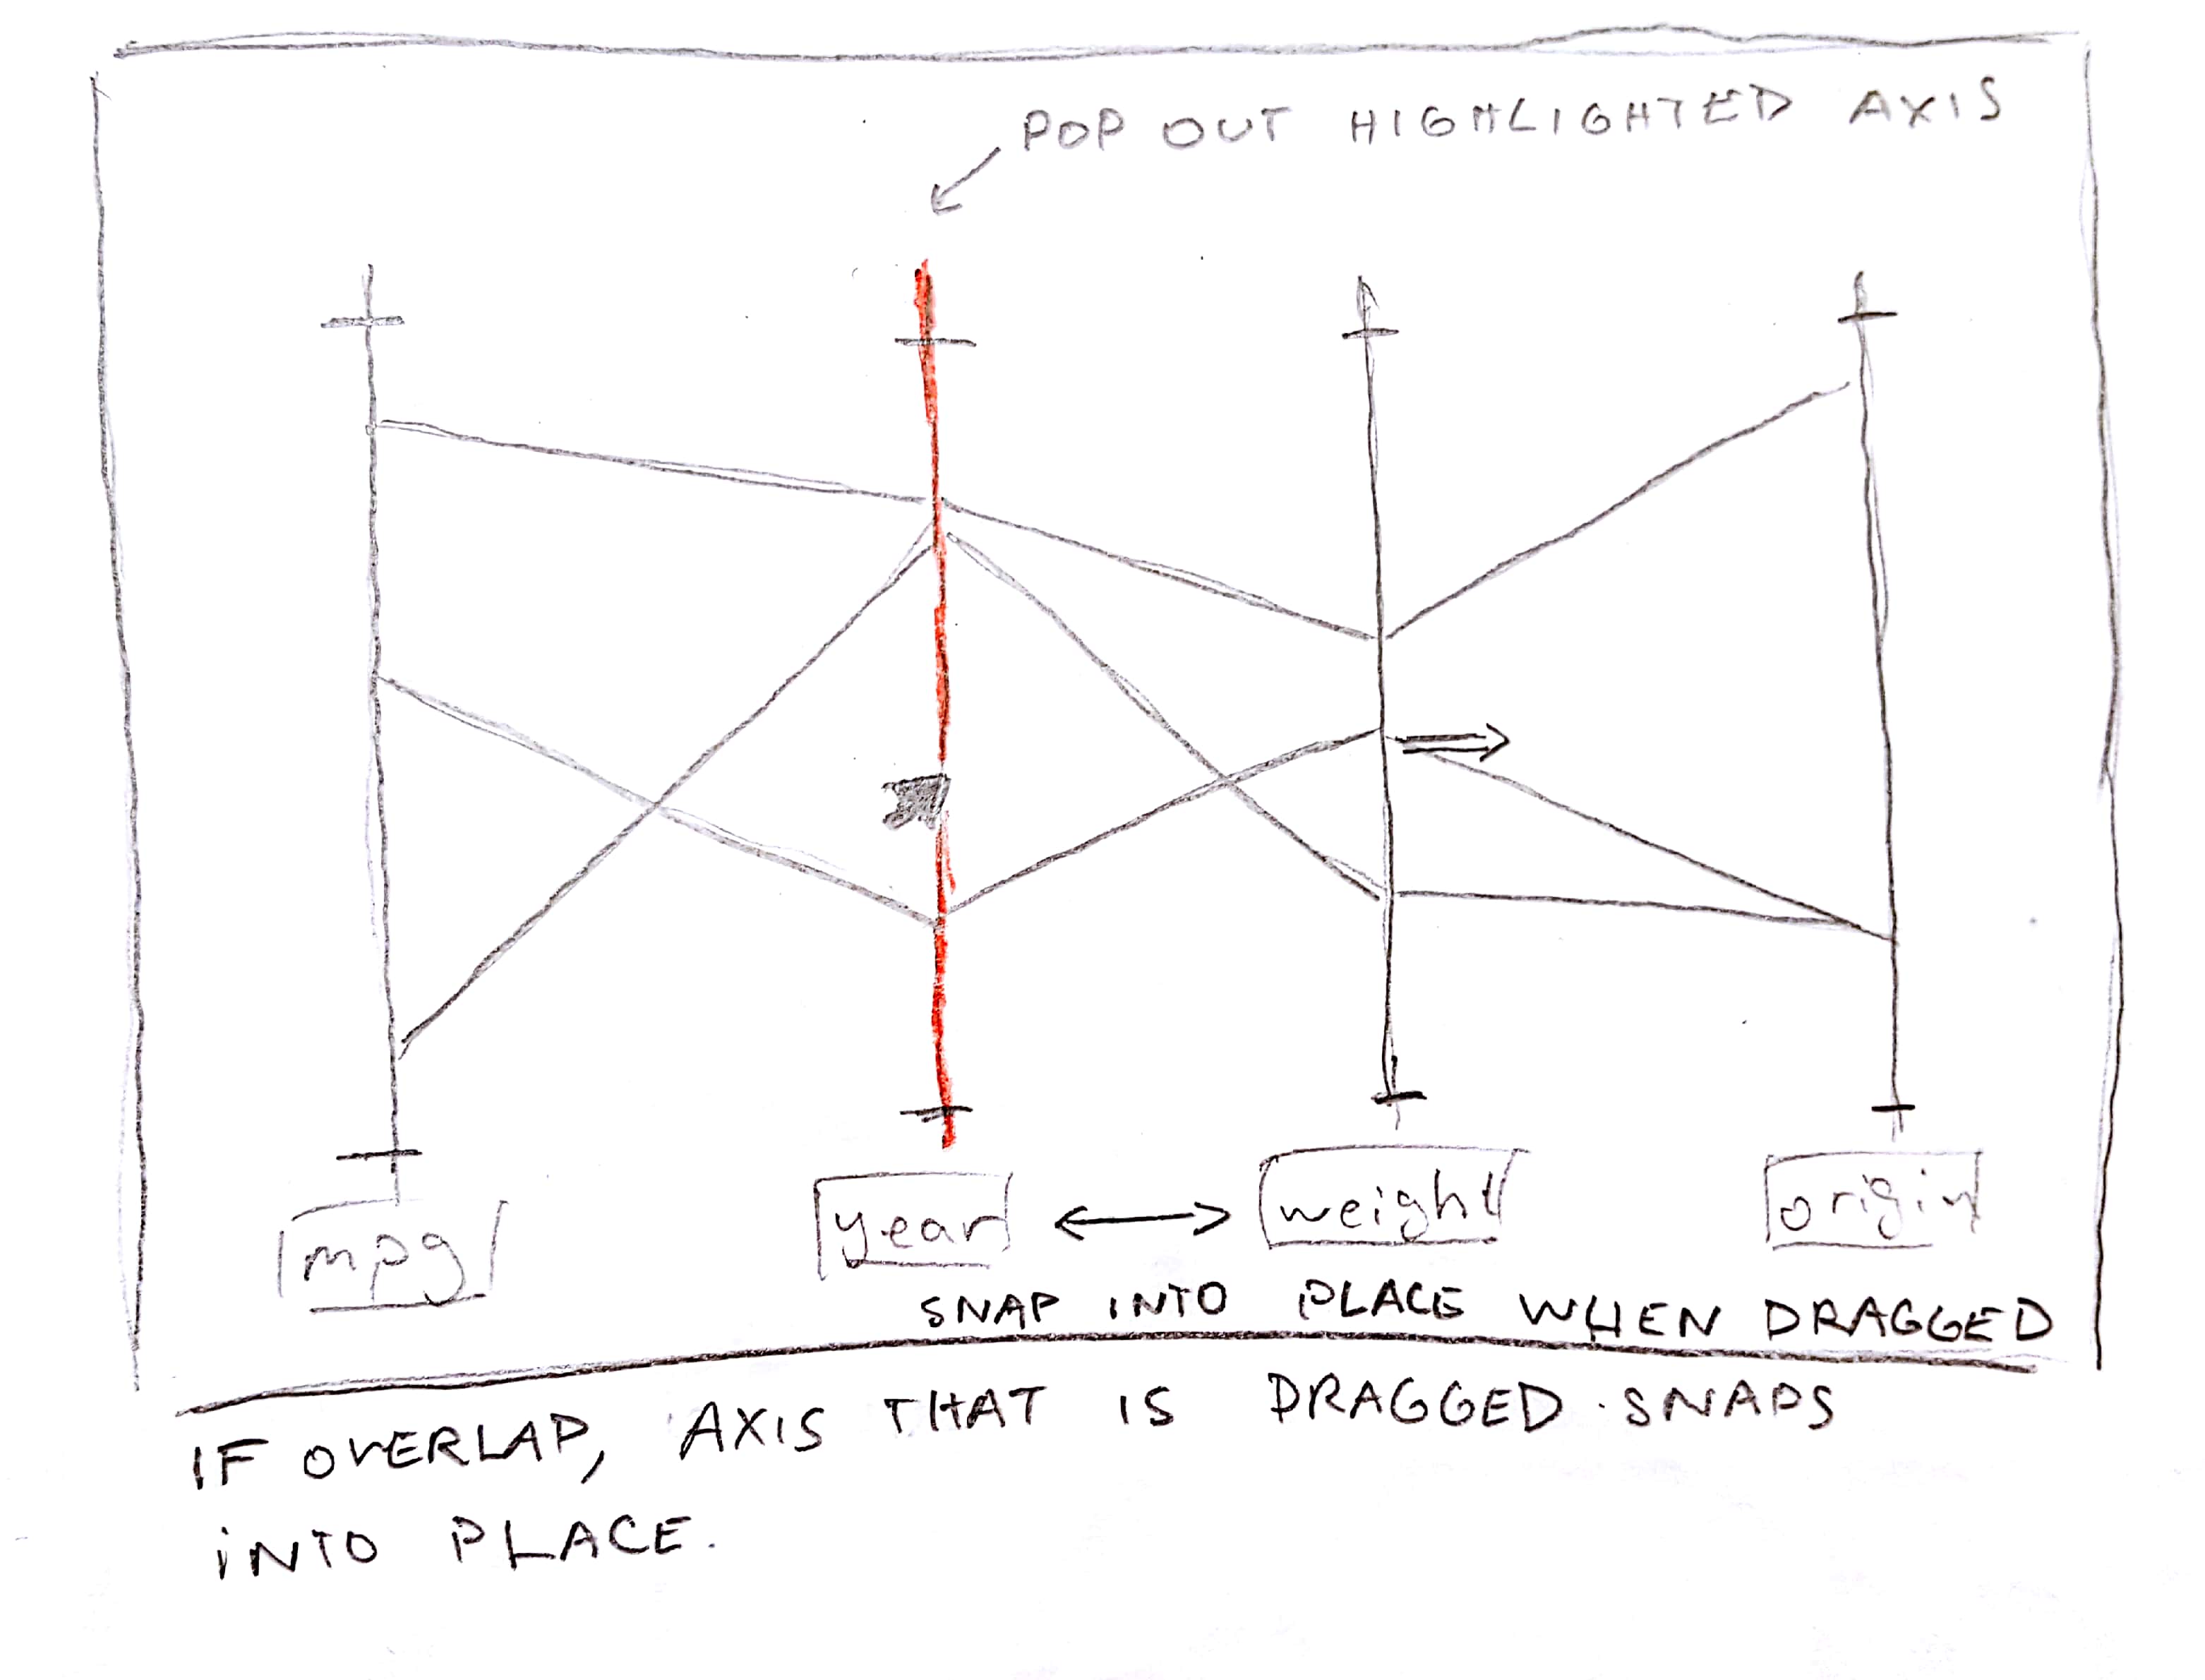 POP OUT HIGHLIGHTED AXIS
mpg
year
weight
origin
SNAP INTO PLACE WHEN DRAGGED
IF OVERLAP, AXIS THAT IS DRAGGED SNAPS
INTO PLACE.